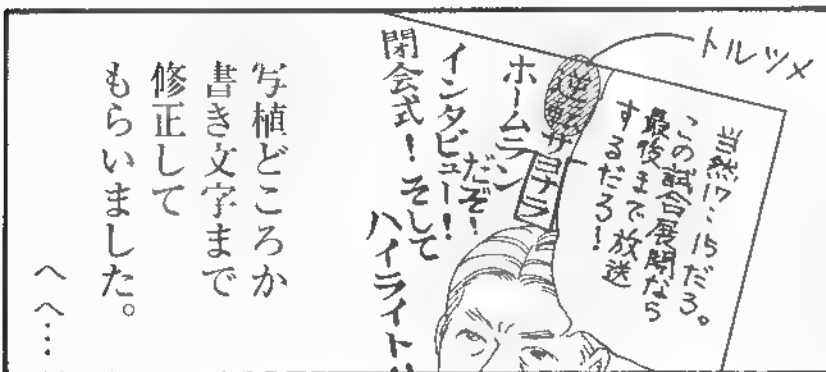 トルツメ
当然17:15だろ。
この試合展開なら
最後まで放送
するだろ!
逆転サヨナラ
ホームラン
だぞ!
インタビュー!
閉会式!そして
ハイライト
写植どころか
書き文字まで
修正して
もらいました。
へへ…